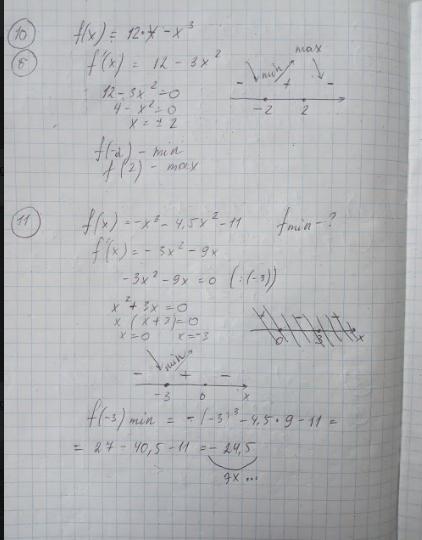 10 f(x) = 12·x - x³
8 f'(x) = 12 - 3x²
12 - 3x² = 0
4 - x² = 0
x = ± 2
max
- min + -
-2 2
f(-2) - min
f(2) - max
11 f(x) = -x³ - 4,5x² - 11 fmin - ?
f'(x) = -3x² - 9x
-3x² - 9x = 0 (:(-3))
x² + 3x = 0
x (x+3) = 0
x = 0 x = -3
- min + -
-3 0 x
f(-3) min = -(-3)³ - 4,5·9 - 11 =
= 27 - 40,5 - 11 = -24,5